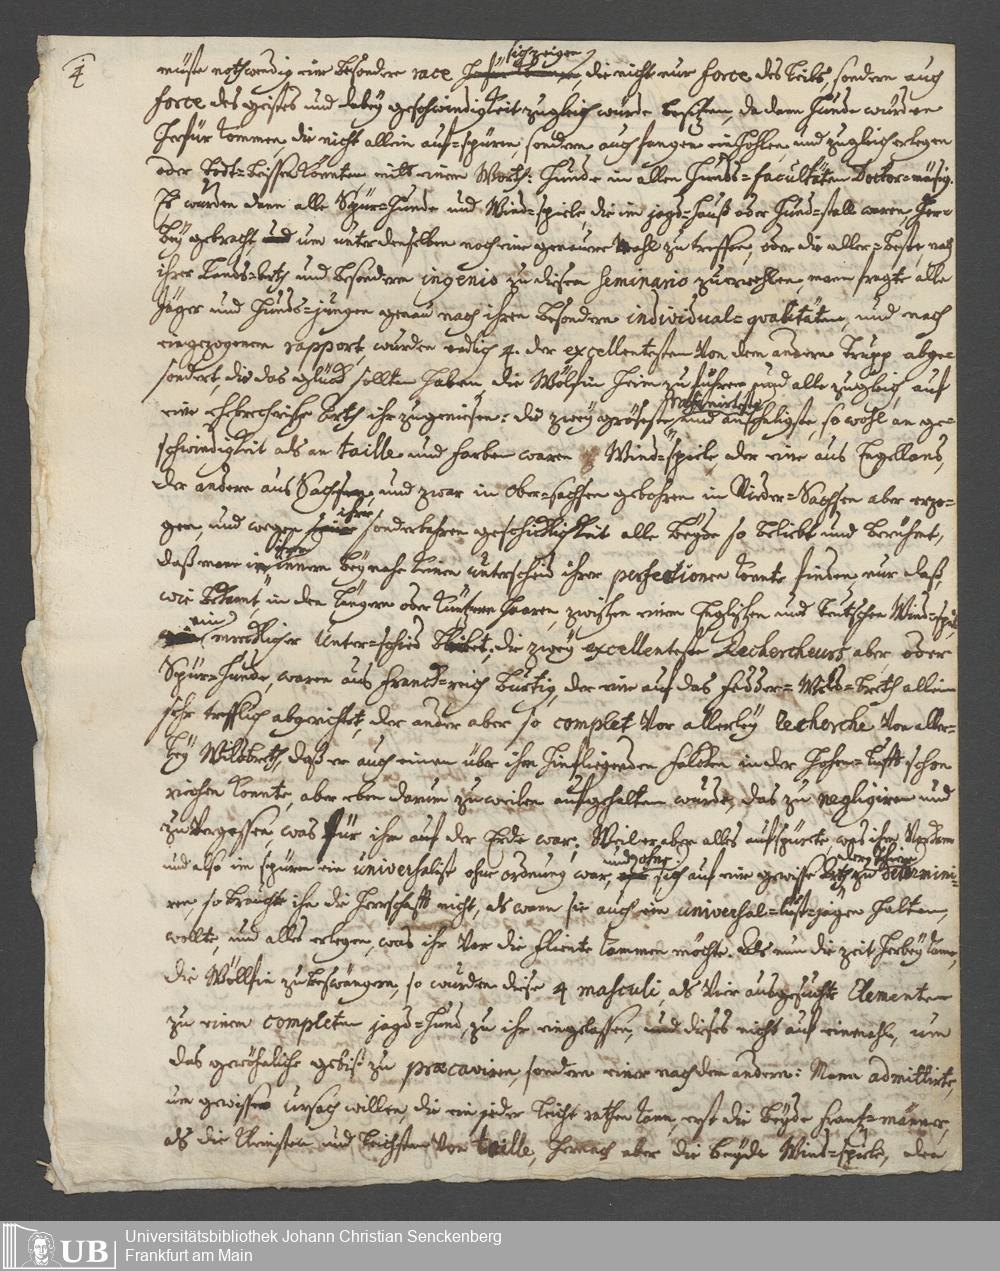 4
müste nothwendig eine besondere race sich zeigen, die nicht nur force des leibs, sondern auch
force des geistes und dabey geschwindigkeit zugleich würde besitzen, da dann hunde würden
herfür kommen, die nicht allein auf-spüren, sondern auch fangen, einhohlen, und zugleich erlegen
oder todt-beissen könnten, mit einem Worth: hunde in allen hunds-facultäten Doctor-mäsig.
Es wurden dann alle Spür-hunde und Wind-spiele, die im jagd-hauß oder hund-stall waren, her-
bey gebracht, um unter denselben noch eine genauere wahl zu treffen, oder die aller-beste, nach
ihrer Lands-arth und besondern ingenio zu diesem Seminario zu erwehlen, man fragte alle
Jäger und Hunds-jungen genau nach ihren besondern individual-qvalitäten, und nach
eingezogenem rapport, wurden endlich 4. der excellentesten von dem andern Trupp abge-
sondert, die das glück sollten haben, die Wölfin heim zu führen, und alle zugleich, auf
eine ehbrechrische arth ihr zu geniesen: die zwey gröseste, und ansehnligste, so wohl an ge-
schwindigkeit als an taille und farben waren Wind-spiele, der eine aus Engelland,
der andere aus Sachsen, und zwar in Ober-sachsen gebohren in Nieder-Sachsen aber erzo-
gen, und wegen ihrer sonderbahren geschicklichkeit alle beyde so beliebt und berühmt,
daß man in ihnen beynahe keinen unterscheid ihrer perfectionen konnte finden, nur daß,
wie bekannt, in den längern oder kürtzern haaren, zwischen einem Englischen und teutschen Wind-spiel,
ein mercklicher Unter-schied bleibet; die zwey excellenteste Rechercheurs aber, oder
Spür-hunde, waren aus Franckreich bürtig, der eine auf das fedder-Wild-breth allein
sehr trefflich abgerichtet, der ander aber so complet vor allerley recherche von aller-
ley Wildbreth, daß er auch einen über ihm hinfliegenden falcken in der hohen-Lufft schon
riechen konnte, aber eben darum zuweilen aufgehalten wurde, das zu negligiren und
zu vergessen, was für ihm auf der Erde war; Weil er aber alles aufspürte, was ihm vorkam
und also im spüren ein universalist ohne ordnung war, und ohne sich auf eine gewisse arth zu determini-
ren, so brauchte ihn die herrschafft nicht, als wann sie auch ein universal-lust-jagen halten,
wollte, und alles erlegen, was ihr vor die flinte kommen möchte. Als nun die zeit herbey kame,
die Wölfin zu beschwängern, so wurden diese 4 masculi, als vier ausgesuchte Elementen
zu einem completen jagd-hund, zu ihr eingelassen, und dieses nicht auf einmahl, um
das gewöhnliche gebiß zu præcaviren, sondern einer nach dem andern: Mann admittirte,
um gewisser ursach willen, die ein jeder leicht rathen kann, erst die beyde frantz-männer,
als die kleinsten und leichsten von taille, hernach aber die beyde Wind-spiele, den
UB
Universitätsbibliothek Johann Christian Senckenberg
Frankfurt am Main